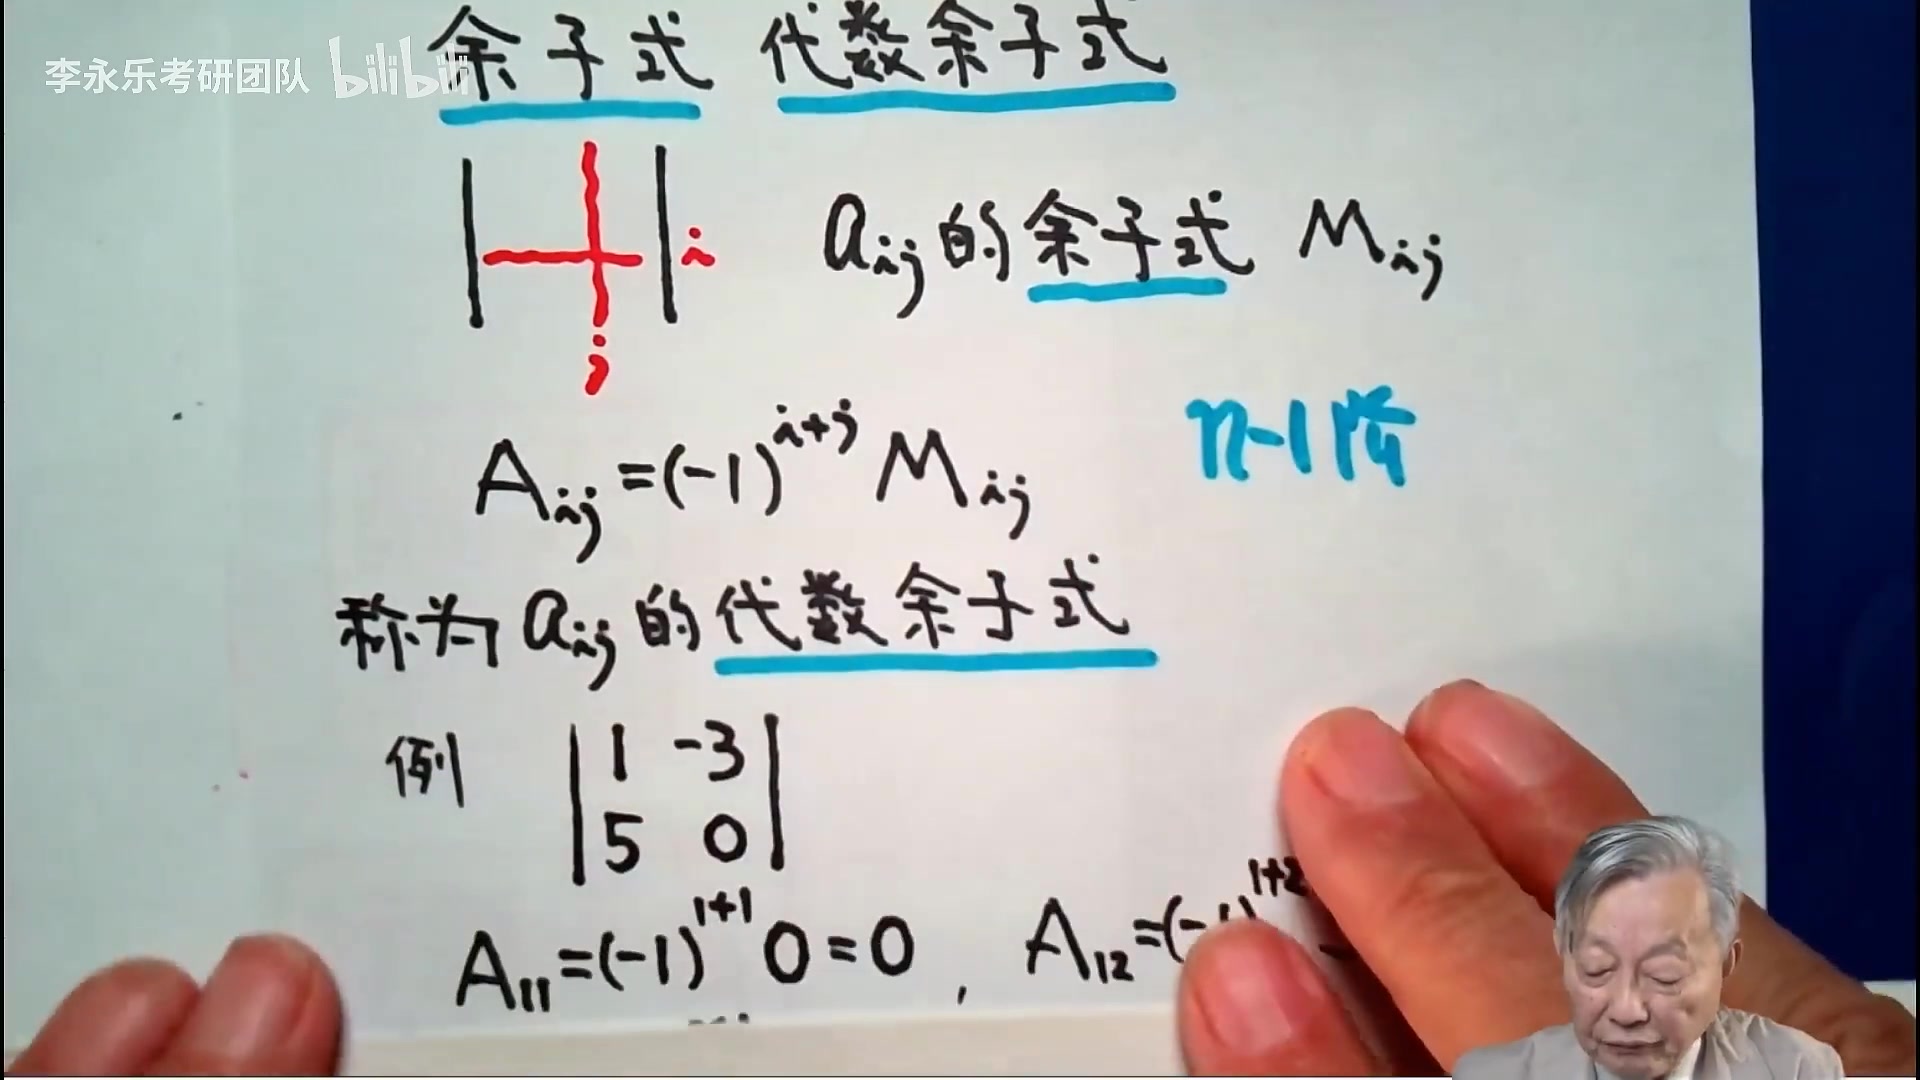 李永乐考研团队 bilibili
余子式 代数余子式
i
j
a_ij 的余子式 M_ij
n-1阶
A_ij = (-1)^{i+j} M_ij
称为 a_ij 的代数余子式
例 | 1 -3 |
| 5 0 |
A_11 = (-1)^{1+1} 0 = 0 , A_12 = (-1)^{1+2}